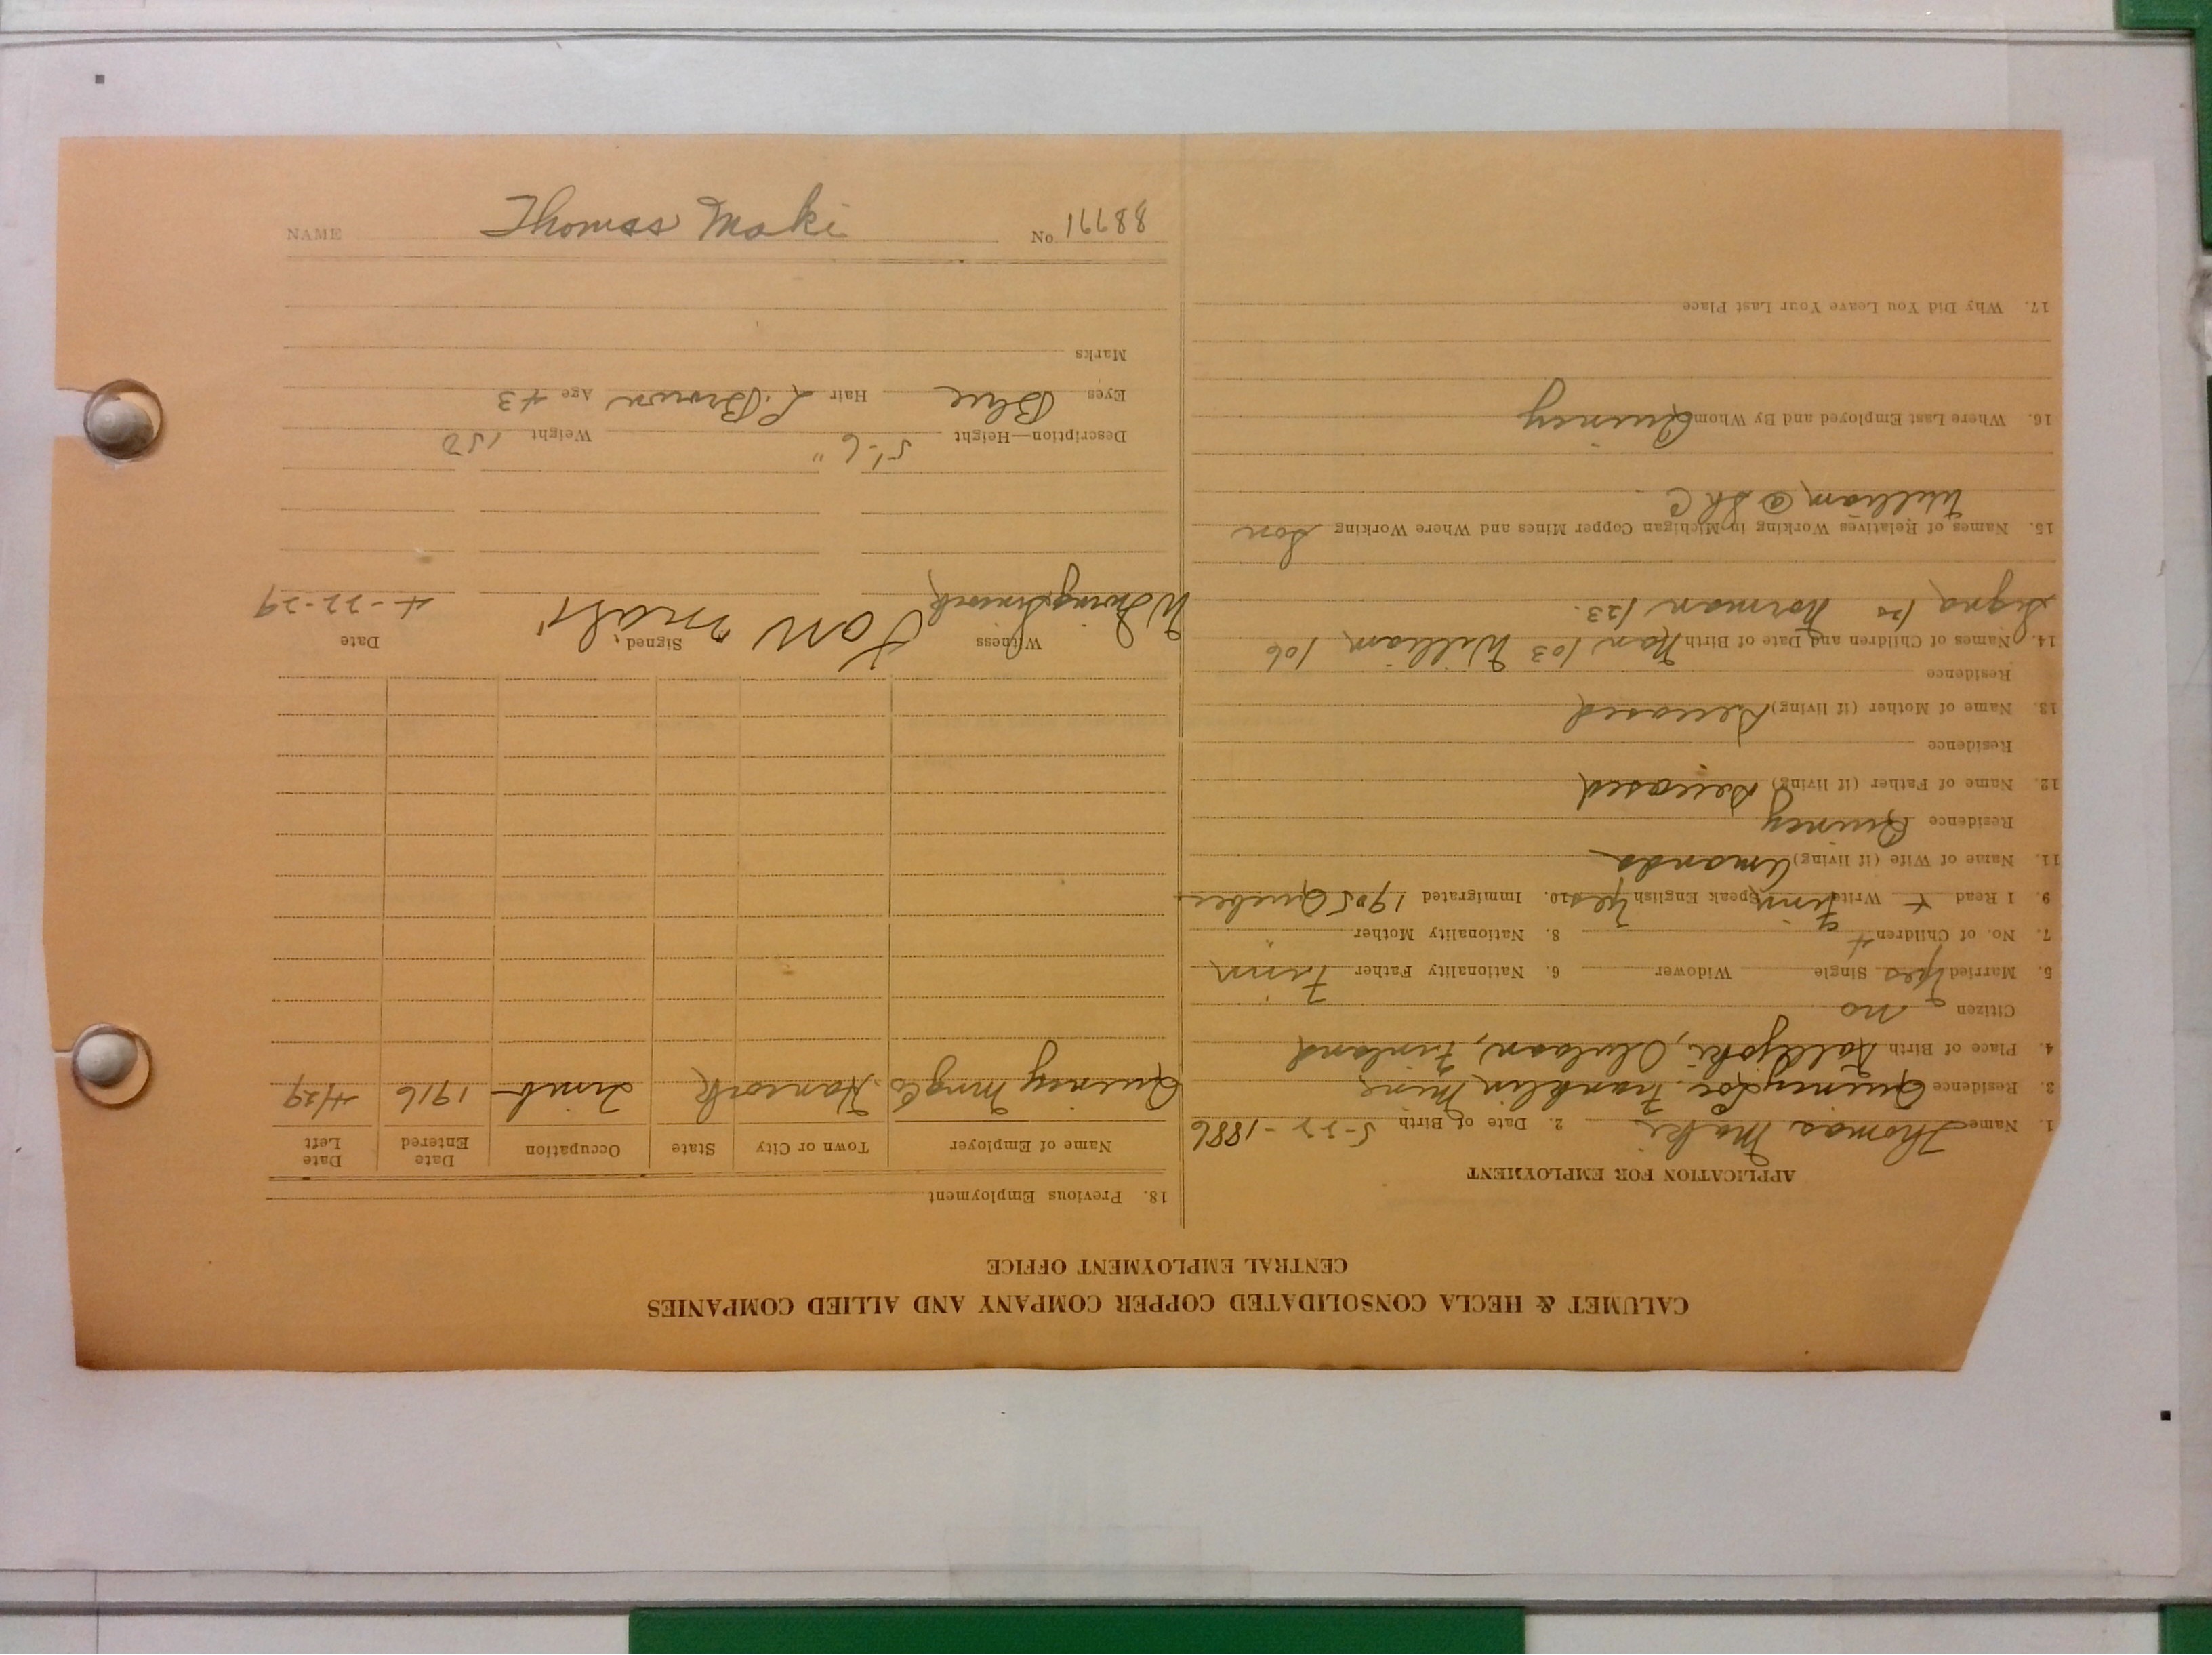 CALUMET & HECLA CONSOLIDATED COPPER COMPANY AND ALLIED COMPANIES
CENTRAL EMPLOYMENT OFFICE
APPLICATION FOR EMPLOYMENT
1. Name Thomas Maki 2. Date of Birth 5-22-1886
3. Residence Quincy Loc. Franklin Mine
4. Place of Birth Finland
Citizen no
5. Married Yes Single Widower 6. Nationality Father Finn
7. No. of Children 4 8. Nationality Mother "
9. I Read + Write Finn Speak English Yes 10. Immigrated 1905 Quebec
11. Name of Wife (if living) Amanda
Residence Quincy
12. Name of Father (if living) Deceased
Residence
13. Name of Mother (if living) Deceased
Residence
14. Names of Children and Date of Birth 103 William 106
Signa Norman 123.
15. Names of Relatives Working in Michigan Copper Mines and Where Working Son
William @
16. Where Last Employed and By Whom Quincy
17. Why Did You Leave Your Last Place
18. Previous Employment
Name of Employer Town or City State Occupation Date Entered Date Left
Quincy Mng Co Hancock 1916 4/29
Witness Signed Date
4-22-29
Description—Height 5'-6" Weight 150
Eyes Blue Hair L. Brown Age 43
Marks
NAME Thomas Maki No. 88771